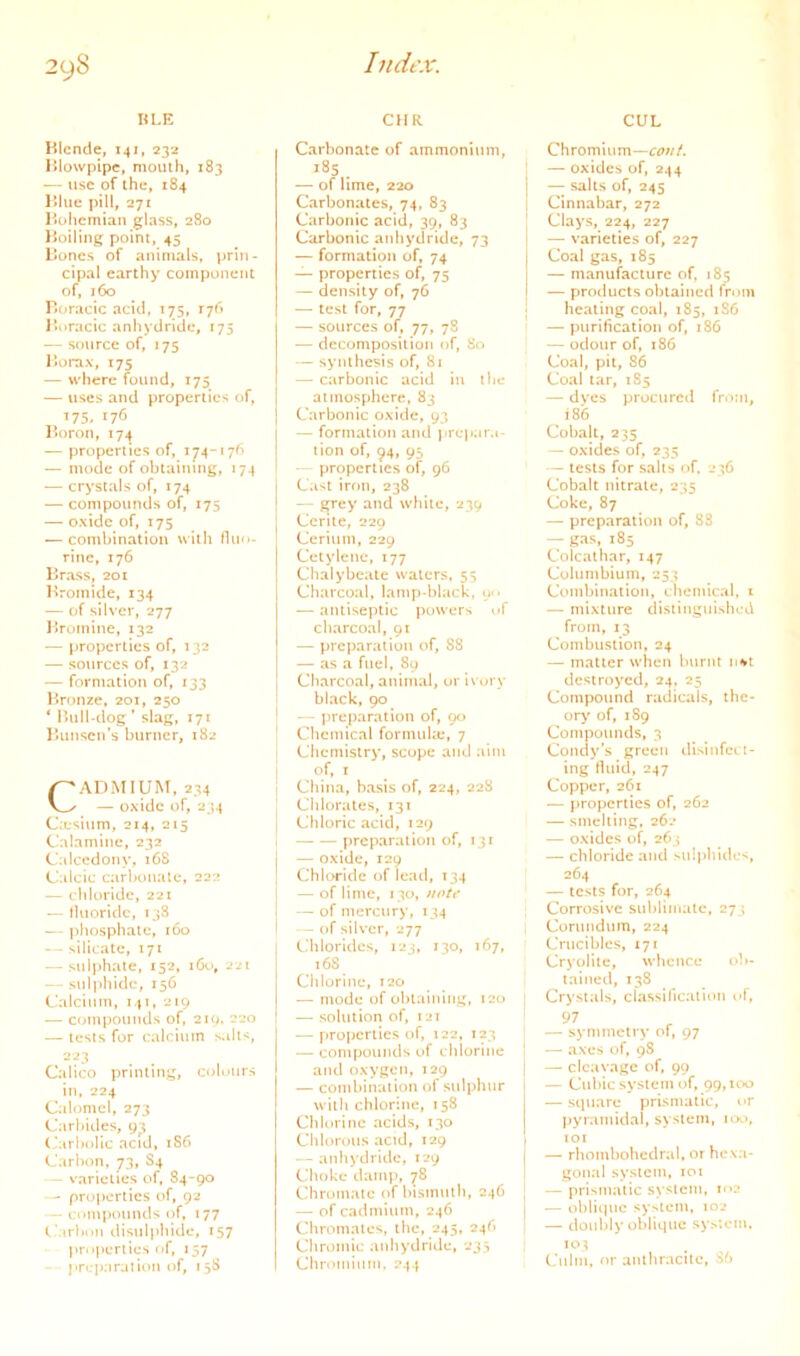 298 Index.
BLE
Blende, 141, 232
Blowpipe, mouth, 183
— use of the, 184
Blue pill, 271
Bohemian glass, 280
Boiling point, 45
Bones of animals, prin-
cipal earthy component
of, 160
Boracic acid, 175, 176
Boracic anhydride, 175
— source of, 175
Borax, 175
— where found, 175
— uses and properties of,
175, 176
Boron, 174
— properties of, 174-176
— mode of obtaining, 174
— crystals of, 174
— compounds of, 175
— oxide of, 175
— combination with fluo-
rine, 176
Brass, 201
Bromide, 134
— of silver, 277
Bromine, 132
— properties of, 132
— sources of, 132
— formation of, 133
Bronze, 201, 250
‘ Bull-dog ’ slag, 171
Bunsen's burner, 182
CADMIUM, 234
— oxide of, 234
Cæsium, 214, 215
Calamine, 232
Calcedony, 168
Calcic carbonate, 222
— chloride, 221
— fluoride, 138
— phosphate, 160
— silicate, 171
— sulphate, 152, 160, 221
— sulphide, 156
Calcium, 141, 219
— compounds of, 219, 220
— tests for calcium salts,
223
Calico printing, colours
in, 224
Calomel, 273
Carbides, 93
Carbolic acid, 186
Carbon, 73, 84
— varieties of, 84-90
— properties of, 92
— compounds of, 177
Carbon disulphide, 157
— properties of, 157
— preparation of, 158
CHR
Carbonate of ammonium,
185
— of lime, 220
Carbonates, 74, 83
Carbonic acid, 39, 83
Carbonic anhydride, 73
— formation of, 74
— properties of, 75
— density of, 76
— test for, 77
— sources of, 77, 78
— decomposition of, 80
— synthesis of, 81
— carbonic acid in the
atmosphere, 83
Carbonic oxide, 93
— formation and prepara-
tion of, 94, 95
— properties of, 96
Cast iron, 238
— grey and white, 239
Cerite, 229
Cerium, 229
Cetylene, 177
Chalybeate waters, 55
Charcoal, lamp-black, 90
— antiseptic powers of
charcoal, 91
— preparation of, 88
— as a fuel, 89
Charcoal, animal, or ivory
black, 90
— preparation of, 90
Chemical formulæ, 7
Chemistry, scope and aim
of, 1
China, basis of, 224, 228
Chlorates, 131
Chloric acid, 129
— — preparation of, 131
— oxide, 129
Chloride of lead, 134
— of lime, 130, note
— of mercury, 134
— of silver, 277
Chlorides, 123, 130, 167,
168
Chlorine, 120
— mode of obtaining, 120
— solution of, 121
— properties of, 122, 123
— compounds of chlorine
and oxygen, 129
— combination of sulphur
with chlorine, 158
Chlorine acids, 130
Chlorous acid, 129
— anhydride, 129
Choke damp, 78
Chromate of bismuth, 246
— of cadmium, 246
Chromates, the, 245, 246
Chromic anhydride, 235
Chromium, 244
CUL
Chromium—cont.
— oxides of, 244
— salts of, 245
Cinnabar, 272
Clays, 224, 227
— varieties of, 227
Coal gas, 185
— manufacture of, 185
— products obtained from
heating coal, 185, 186
— purification of, 186
— odour of, 186
Coal, pit, 86
Coal tar, 185
— dyes procured from,
186
Cobalt, 235
— oxides of, 235
— tests for salts of, 236
Cobalt nitrate, 235
Coke, 87
— preparation of, 88
— gas, 185
Colcathar, 147
Columbium, 253
Combination, chemical, 1
— mixture distinguished
from, 13
Combustion, 24
— matter when burnt not
destroyed, 24, 25
Compound radicals, the-
ory of, 189
Compounds, 3
Condy's green disinfect-
ing fluid, 247
Copper, 261
— properties of, 262
— smelting, 262
— oxides of, 263
— chloride and sulphides,
264
— tests for, 264
Corrosive sublimate, 273
Corundum, 224
Crucibles, 171
Cryolite, whence ob-
tained, 138
Crystals, classification of,
97
— symmetry of, 97
— axes of, 98
— cleavage of, 99
— Cubic system of, 99, 100
— square prismatic, or
pyramidal, system, 100,
101
— rhombohedral, or hexa-
gonal system, 101
— prismatic system, 102
— oblique system, 102
— doubly oblique system,
103
Culm, or anthracite, 86